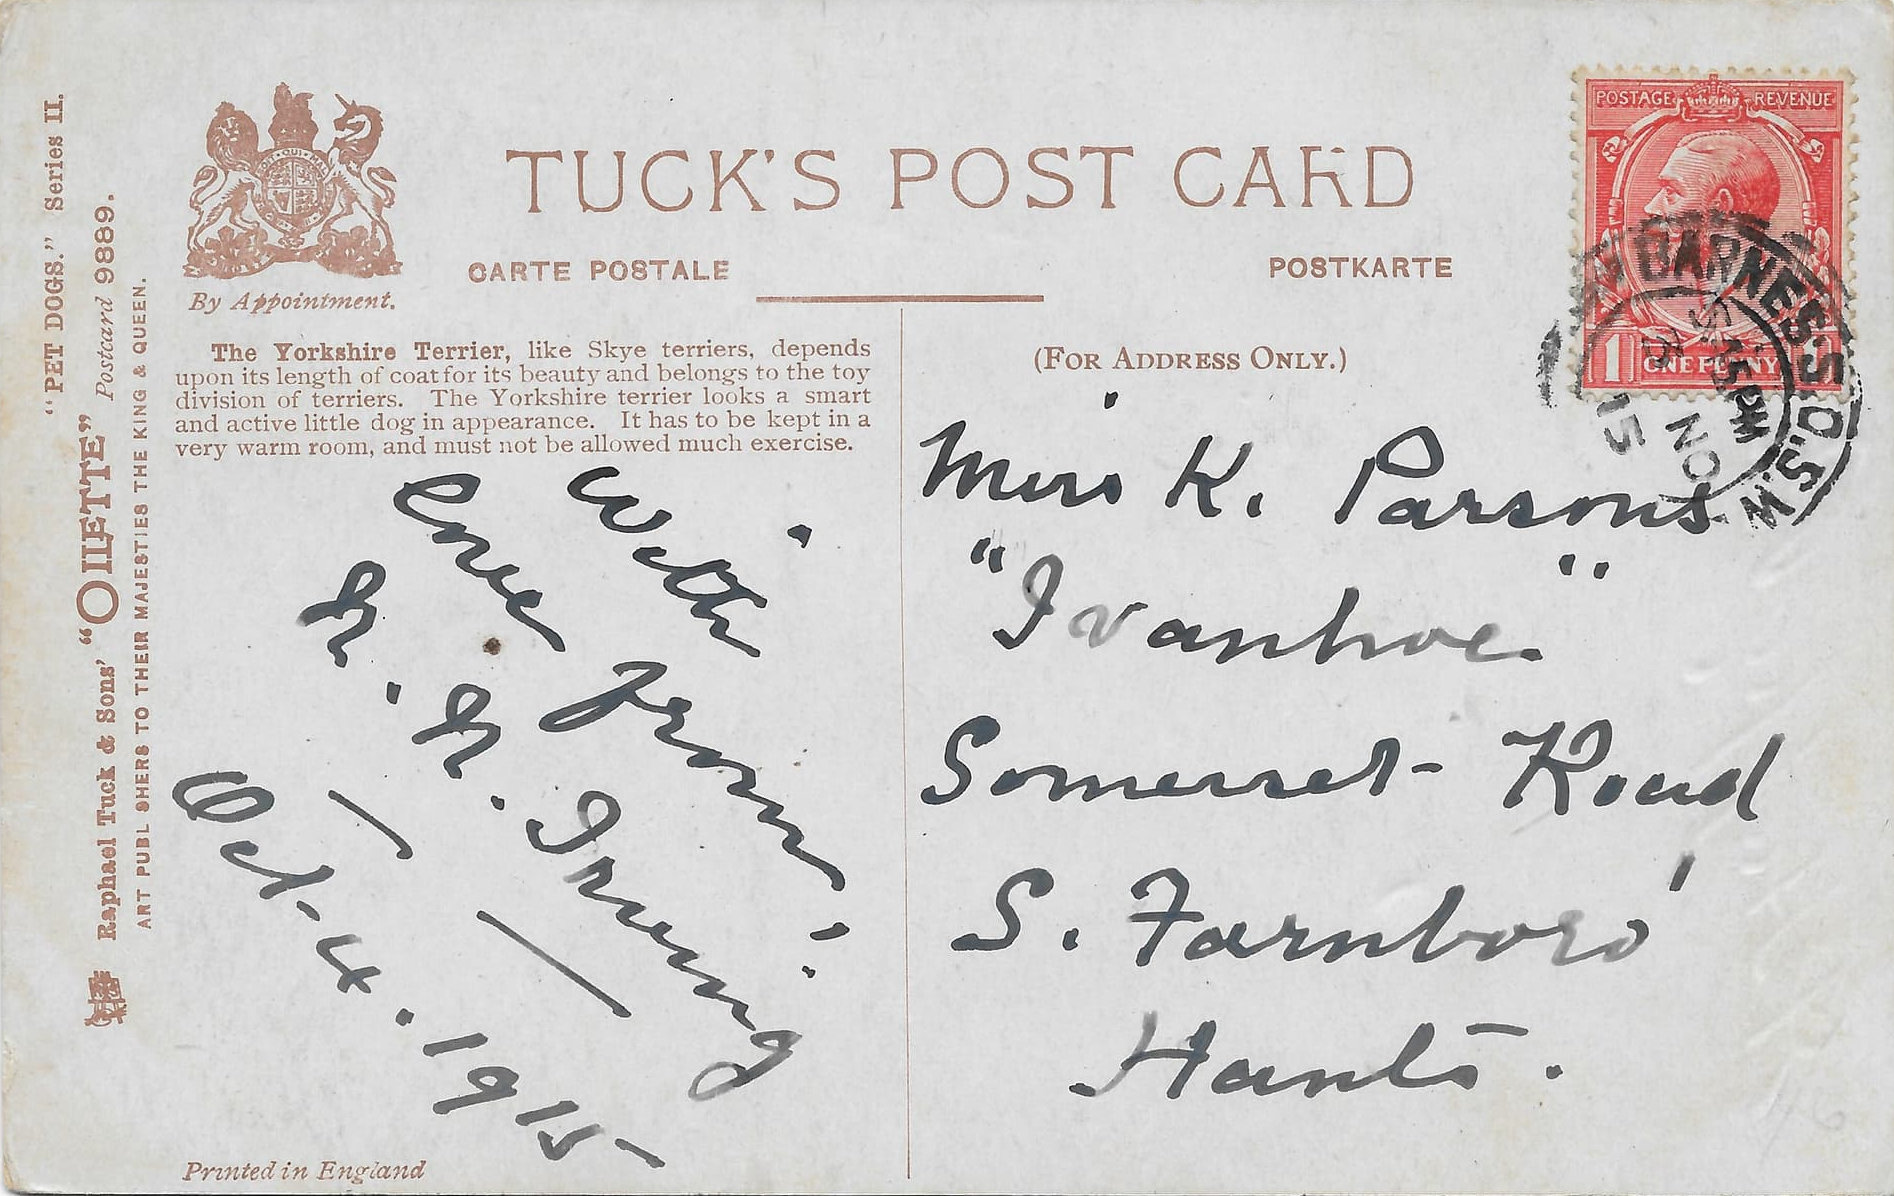 "PET DOGS." Series II.
Raphael Tuck & Sons' "OILETTE" Postcard 9889.
ART PUBLISHERS TO THEIR MAJESTIES THE KING & QUEEN.
By Appointment.
TUCK'S POST CARD
CARTE POSTALE POSTKARTE
The Yorkshire Terrier, like Skye terriers, depends
upon its length of coat for its beauty and belongs to the toy
division of terriers. The Yorkshire terrier looks a smart
and active little dog in appearance. It has to be kept in a
very warm room, and must not be allowed much exercise.
With
love from
Irving
Oct. 4. 1915
Printed in England
(FOR ADDRESS ONLY.)
Miss K. Parsons
"Ivanhoe"
Somerset Road
S. Farnboro'
Hants.
POSTAGE REVENUE
1 ONE PENNY
BARNES. S.O. S.W.
5.15PM
NO
15